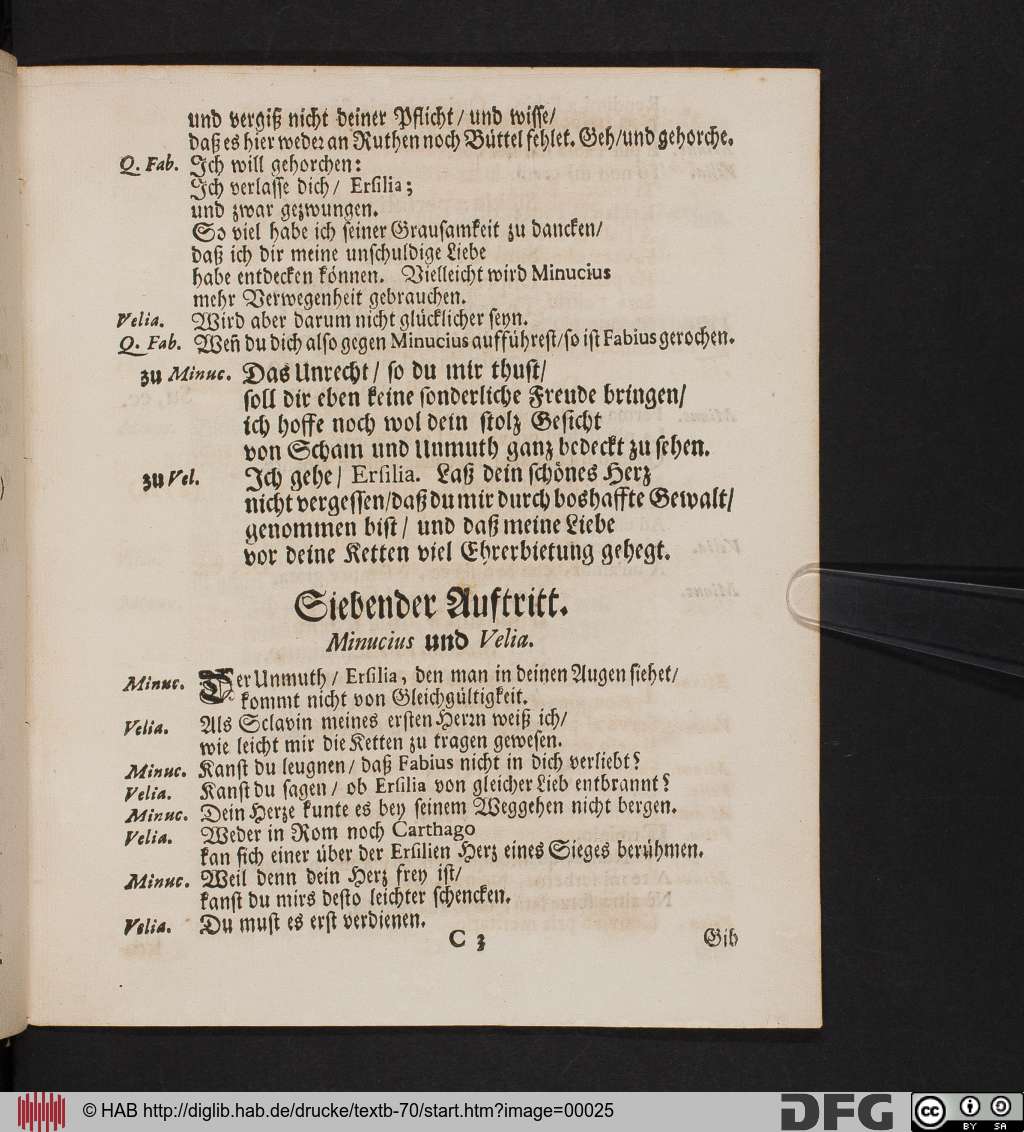 und vergiß nicht deiner Pflicht / und wisse /
daß es hier weder an Ruthen noch Büttel fehlet. Geh / und gehorche.
Q. Fab. Ich will gehorchen:
Ich verlasse dich / Ersilia;
und zwar gezwungen.
So viel habe ich seiner Grausamkeit zu dancken /
daß ich dir meine unschuldige Liebe
habe entdecken können. Vielleicht wird Minucius
mehr Verwegenheit gebrauchen.
Velia. Wird aber darum nicht glücklicher seyn.
Q. Fab. Weñ du dich also gegen Minucius aufführest / so ist Fabius gerochen.
zu Minuc. Das Unrecht / so du mir thust /
soll dir eben keine sonderliche Freude bringen /
ich hoffe noch wol dein stolz Gesicht
von Scham und Unmuth ganz bedeckt zu sehen.
zu Vel. Ich gehe / Ersilia. Laß dein schönes Herz
nicht vergessen / daß du mir durch boshaffte Gewalt /
genommen bist / und daß meine Liebe
vor deine Ketten viel Ehrerbietung gehegt.
Siebender Auftritt.
Minucius und Velia.
Minuc. Der Unmuth / Ersilia, den man in deinen Augen siehet /
kommt nicht von Gleichgültigkeit.
Velia. Als Sclavin meines ersten Herrn weiß ich /
wie leicht mir die Ketten zu tragen gewesen.
Minuc. Kanst du leugnen / daß Fabius nicht in dich verliebt?
Velia. Kanst du sagen / ob Ersilia von gleicher Lieb entbrannt?
Minuc. Dein Herze kunte es bey seinem Weggehen nicht bergen.
Velia. Weder in Rom noch Carthago
kan sich einer über der Ersilien Herz eines Sieges berühmen.
Minuc. Weil denn dein Herz frey ist /
kanst du mirs desto leichter schencken.
Velia. Du must es erst verdienen.
C 3 Gib
© HAB http://diglib.hab.de/drucke/textb-70/start.htm?image=00025
DFG
cc BY SA